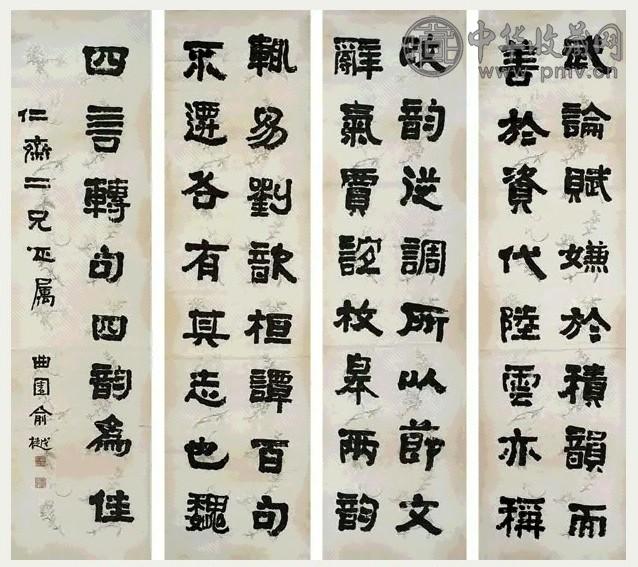 武論賦嫌於積韻而
善於資代陸雲亦稱
改韻從調所以節文
辭氣賈誼枚皋兩韻
輒易劉歆桓譚百句
不遷各有其志也魏
四言轉句四韻為佳
仁齋二兄正属
曲園俞樾
中华收藏网
www.pmv.cn